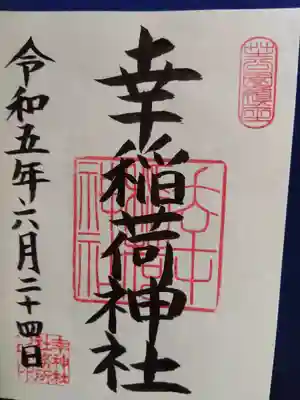 幸稲荷神社
令和五年六月二十四日